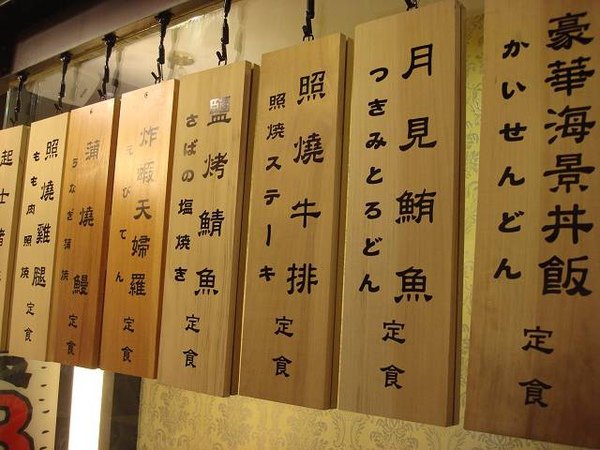 豪華海景丼飯
かいせんどん
定食
月見鮪魚
つきみとろどん
定食
照燒牛排
照焼ステーキ
定食
鹽烤鯖魚
さばの塩焼き
定食
炸蝦天婦羅
えびてん
定食
蒲燒鰻
うなぎ蒲焼
定食
照燒雞腿
もも肉照焼
定食
起士